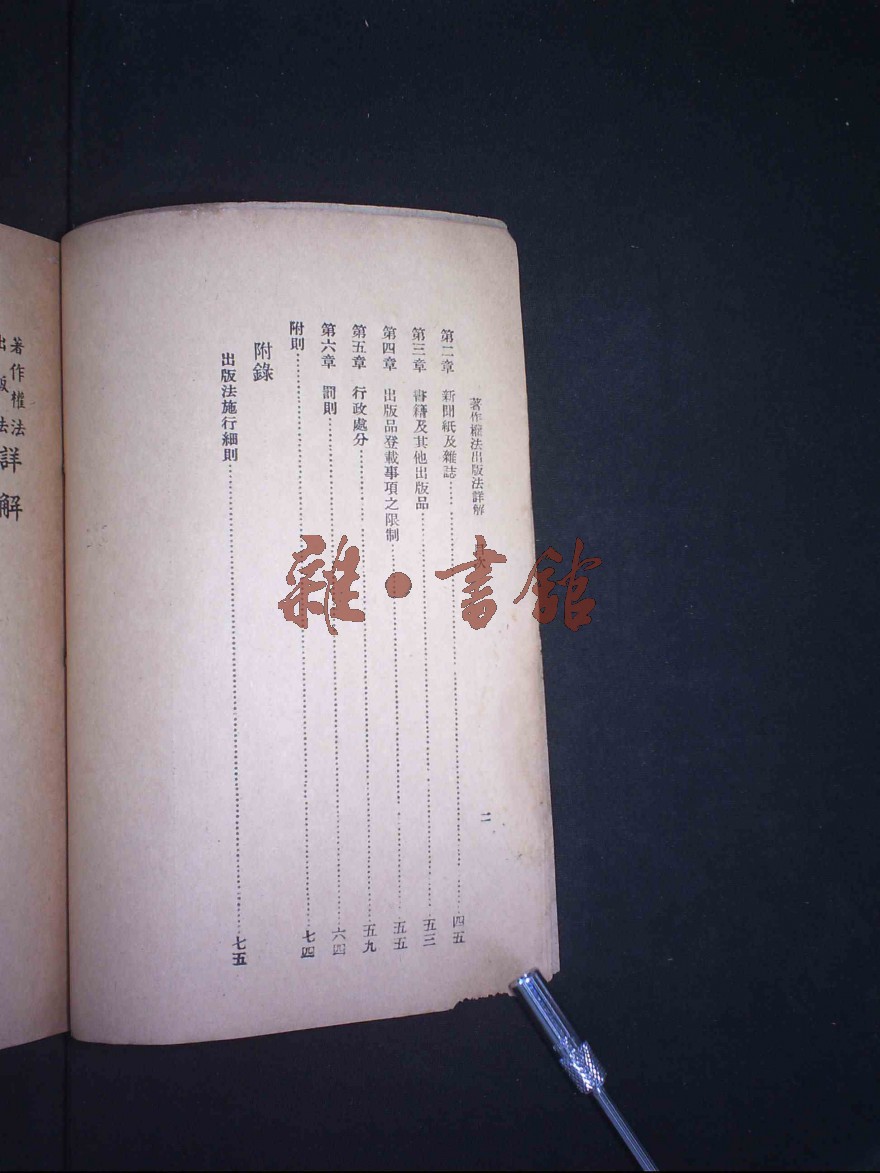 著作權法出版法詳解 目次
二
第二章 新聞紙及雜誌 四五
第三章 書籍及其他出版品 五三
第四章 出版品登載事項之限制 五五
第五章 行政處分 五九
第六章 罰則 六四
附則 七四
附錄
出版法施行細則 七五
著作權法
出版法
詳解
雜·書館